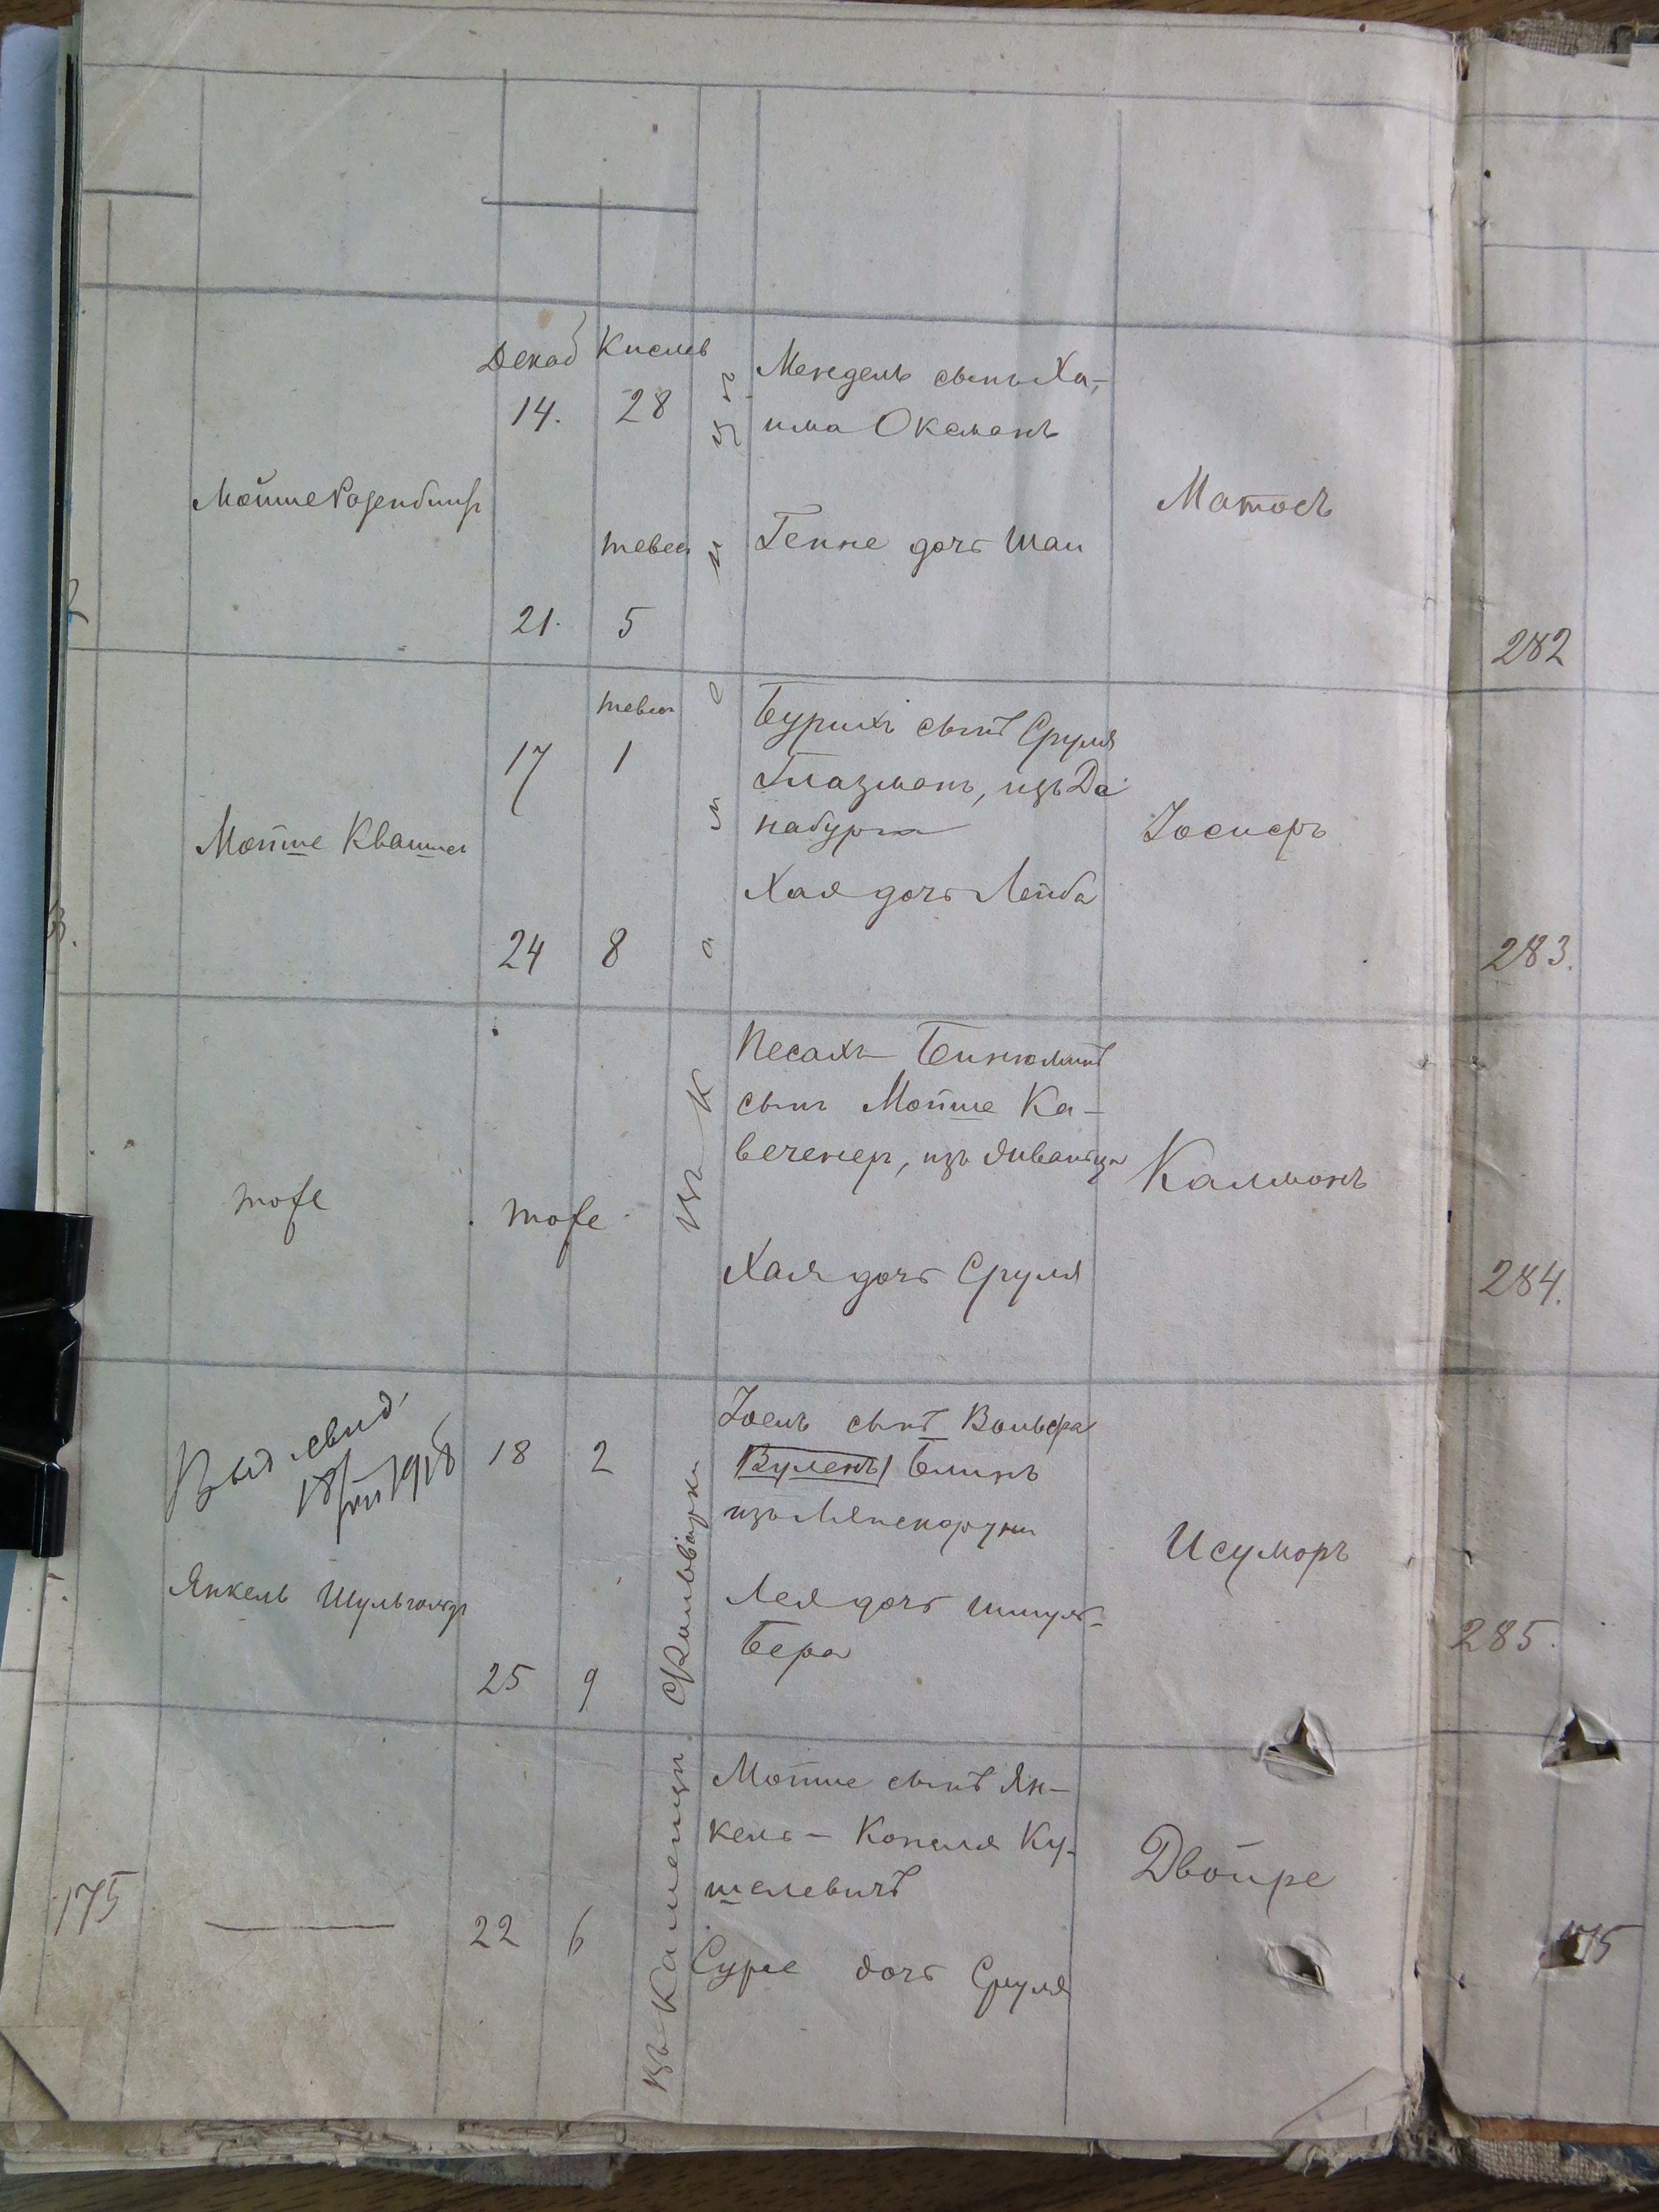 Декаб Кислев
14. 28
Мендель сынъ Ха-
има Оксманъ
Мойше Розенблит
Матосъ
тевес
Генне дочь Шаи
21. 5
282
тевес
17 1
Бурихъ сынъ Сруля
Глазманъ, изъ Ди
набурга
Мойше Квашнер
Іосифъ
Хая дочь Лейба
24 8
283.
Песахъ-Бинюминъ
сынъ Мойше Ка-
веченер,
тоже
тоже
Калманъ
Хая дочь Сруля
284.
Выд. свид.
18/VII 1918
18 2
Іоель сынъ Вольфа
/Вуленъ/ Блинъ
изъ
Янкель
Исуморъ
Лея дочь Шмуль-
Бера
285.
25 9
въ Каменцѣ
Мойше сынъ Ян-
кель-Копеля Ку-
шелевичъ
Двойре
175
22 6
Суре дочь Сруля
175